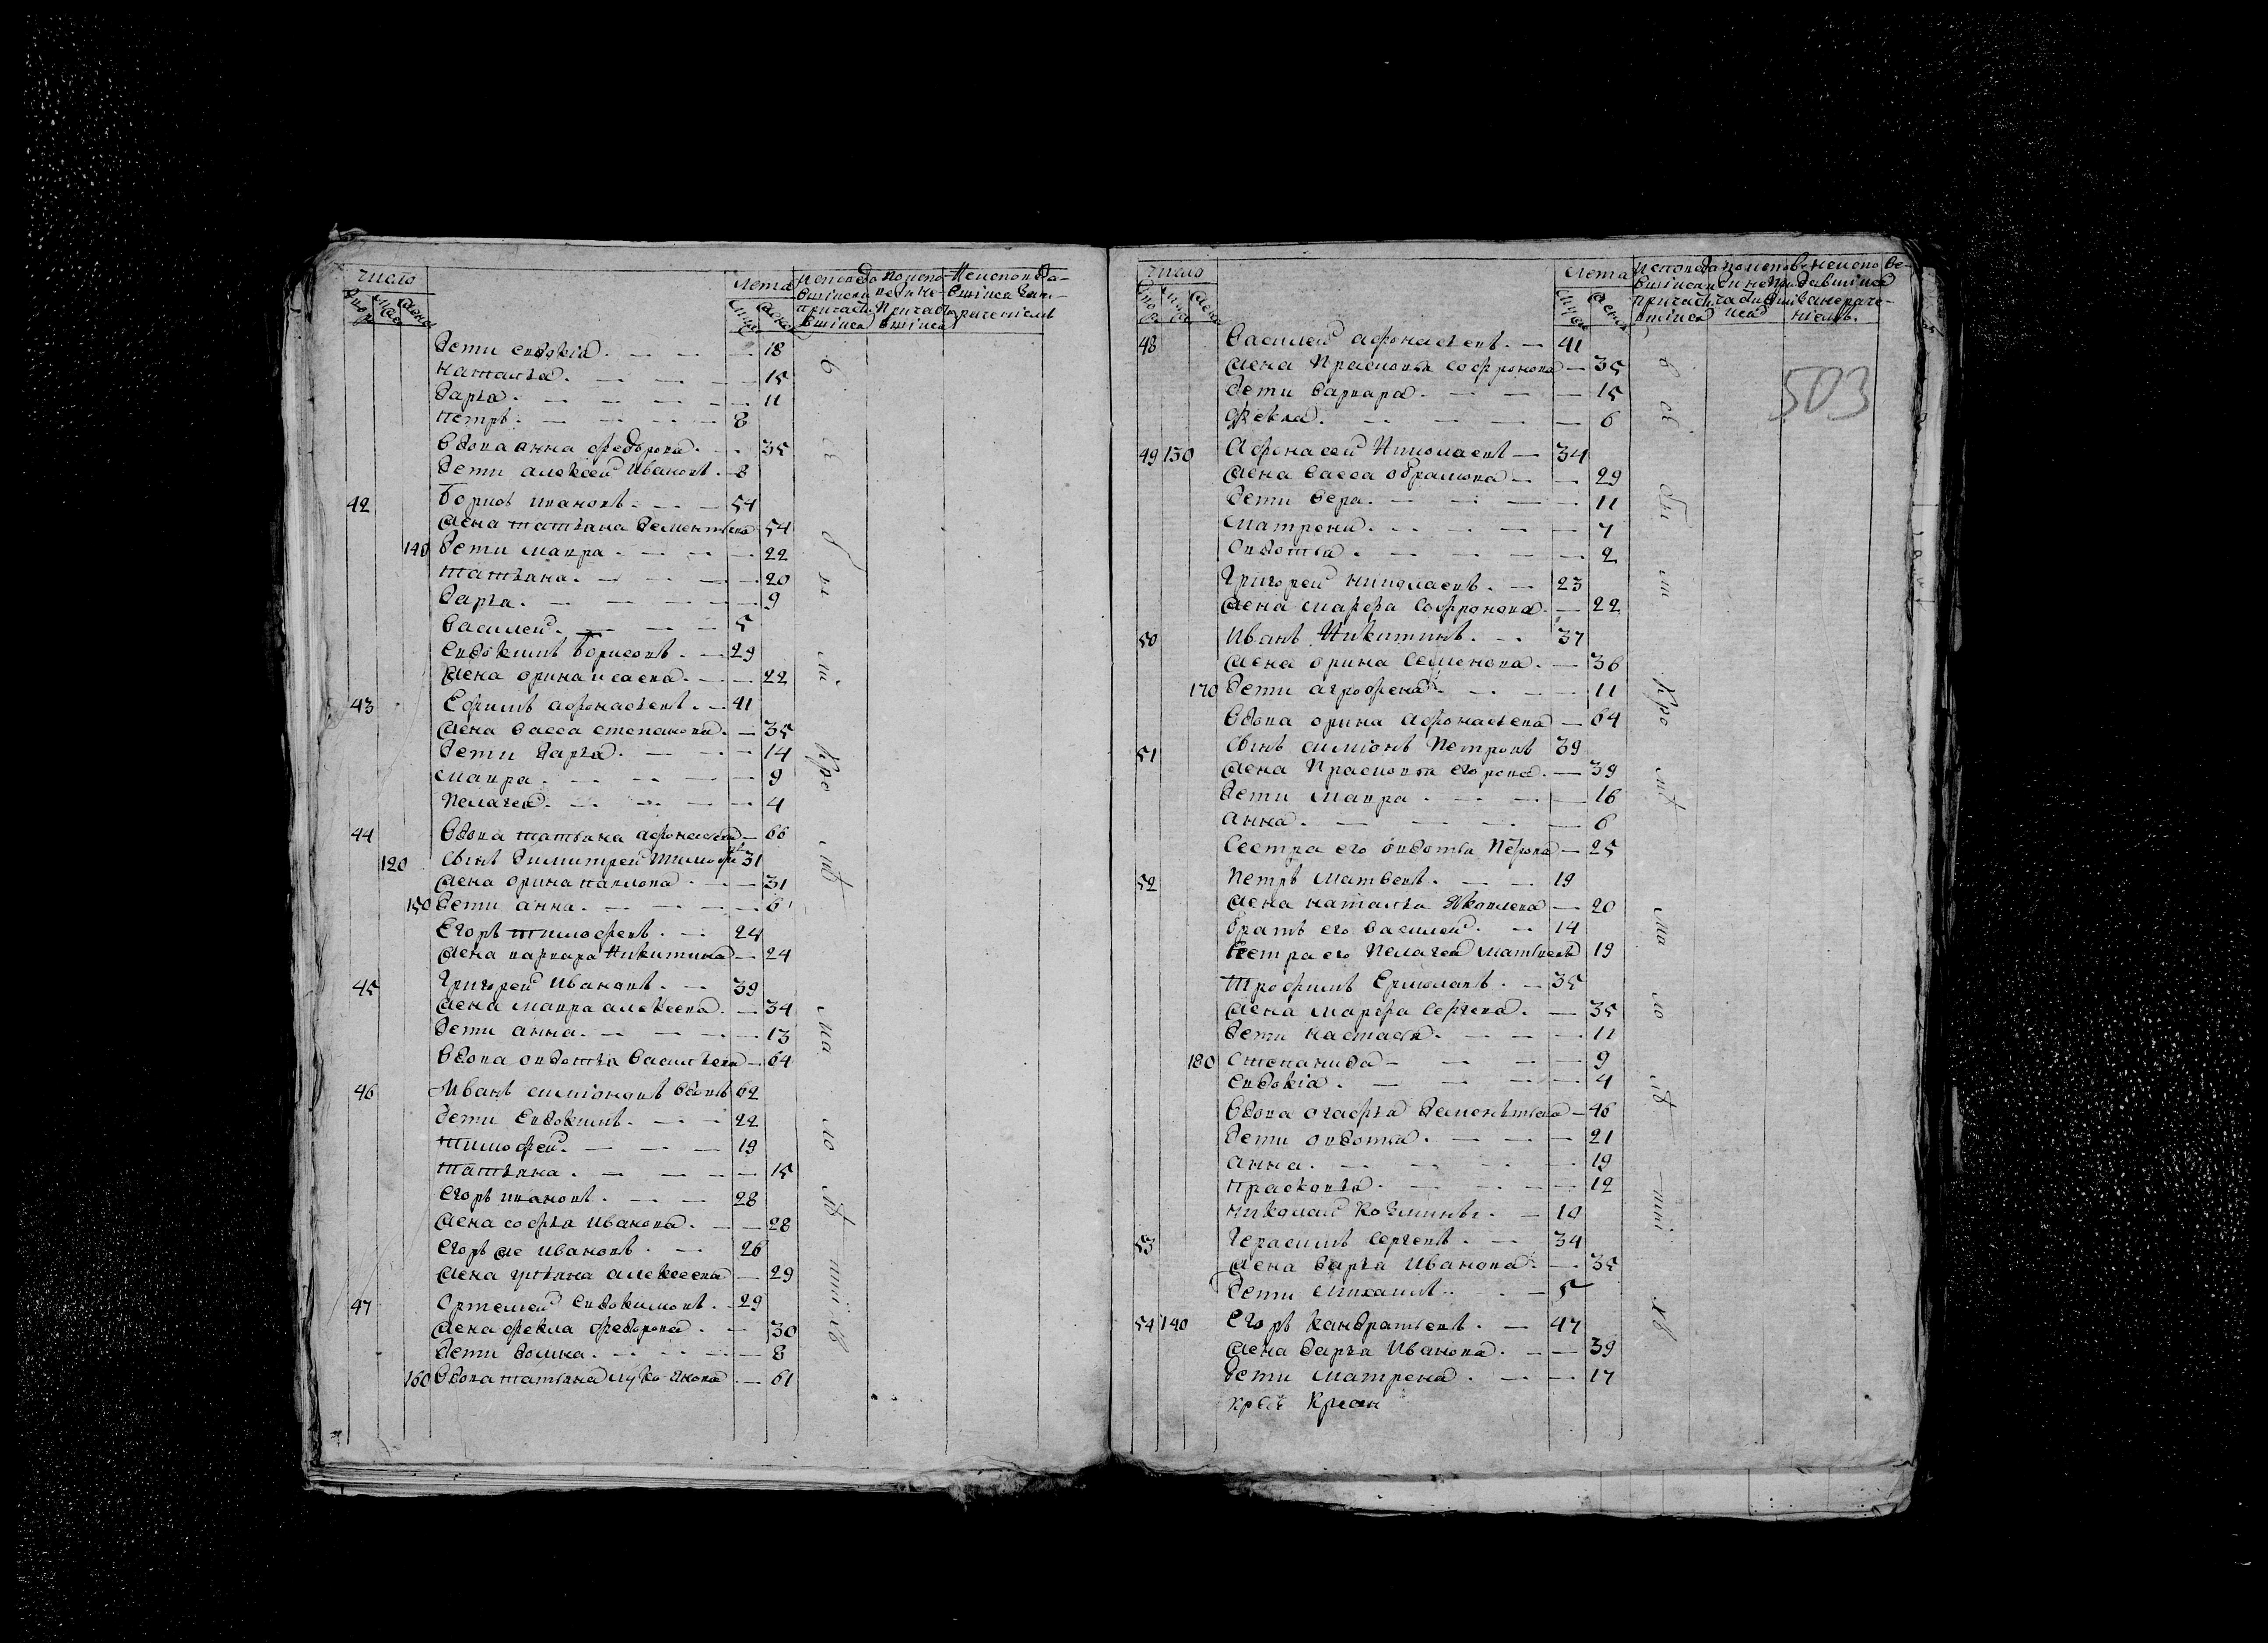 число
лета
исповеда
вшiися и
причасти
вшiися
по испо
ведине
причасти
вшiися
Неисповда-
вшiися за не
рачениемъ
дети евдокiа 18
наталья 15
дарья 11
петръ 8
вдова анна федорова 35
дети алексей иванов 8
42 Борисъ ивановъ 54
жена татьяна дементьева 54
140 дети мавра 22
татьяна 20
дарья 9
василей 5
евдокимъ борисовъ 29
жена орина исаева 22
43 Ефимъ афонасьевъ 41
жена васса степанова 35
дети дарья 14
мавра 9
пелагея 4
44 вдова татьяна афонасьева 66
120 сынъ димитрей тимофе 31
жена орина павлова 31
150 дети анна 6
Егоръ тимофеевъ 24
жена варвара никитина 24
45 Григорей ивановъ 39
жена мавра алексеева 34
дети анна 13
вдова овдотья васильева 64
46 Иванъ симiоновъ вдовъ 62
дети евдокимъ 22
тимофей 19
татьяна 15
егоръ ивановъ 28
жена софья иванова 28
егоръ же ивановъ 26
жена алексеева 29
47 Ортемей евдокимовъ 29
жена фекла федорова 30
дети домна 8
160 вдова татьяна лукоянова 61
всѣ бытъ кро мѣ ма ло лѣтнiихъ
число
лета
исповеда
вшiися и
причасти
вшiися
неиспове-
давшiися
за нераче-
нiемъ
503
48 василей афонасьевъ 41
жена прасковья софронова 35
дети варвара 15
фекла 6
49 130 Афонасей николаевъ 34
жена васса обрамова 29
дети вера 11
матрена 7
овдотья 2
григорей николаевъ 23
жена марфа софронова 22
50 иванъ никитинъ 37
жена орина семенова 36
170 дети агрофена 11
вдова орина афонасьева 64
51 сынъ симiонъ петровъ 39
жена прасковья егорова 39
дети мавра 16
анна 6
сестра его овдотья петрова 25
52 петръ матвеевъ 19
жена наталья яковлева 20
братъ его василей 14
сестра его пелагея матвеева 19
трофимъ ермолаевъ 35
жена марфа сергеева 35
дети настасья 11
180 степанида 9
евдокiа 4
вдова огафья дементьева 46
дети овдотья 21
анна 19
прасковья 12
николай козминъ 10
53 герасимъ сергеевъ 34
жена дарья иванова 35
дети михаилъ 5
54 140 егоръ кандратьевъ 47
жена дарья иванова 39
дети матрена 17
всѣ бытъ кро мѣ ма ло лѣ тнiихъ